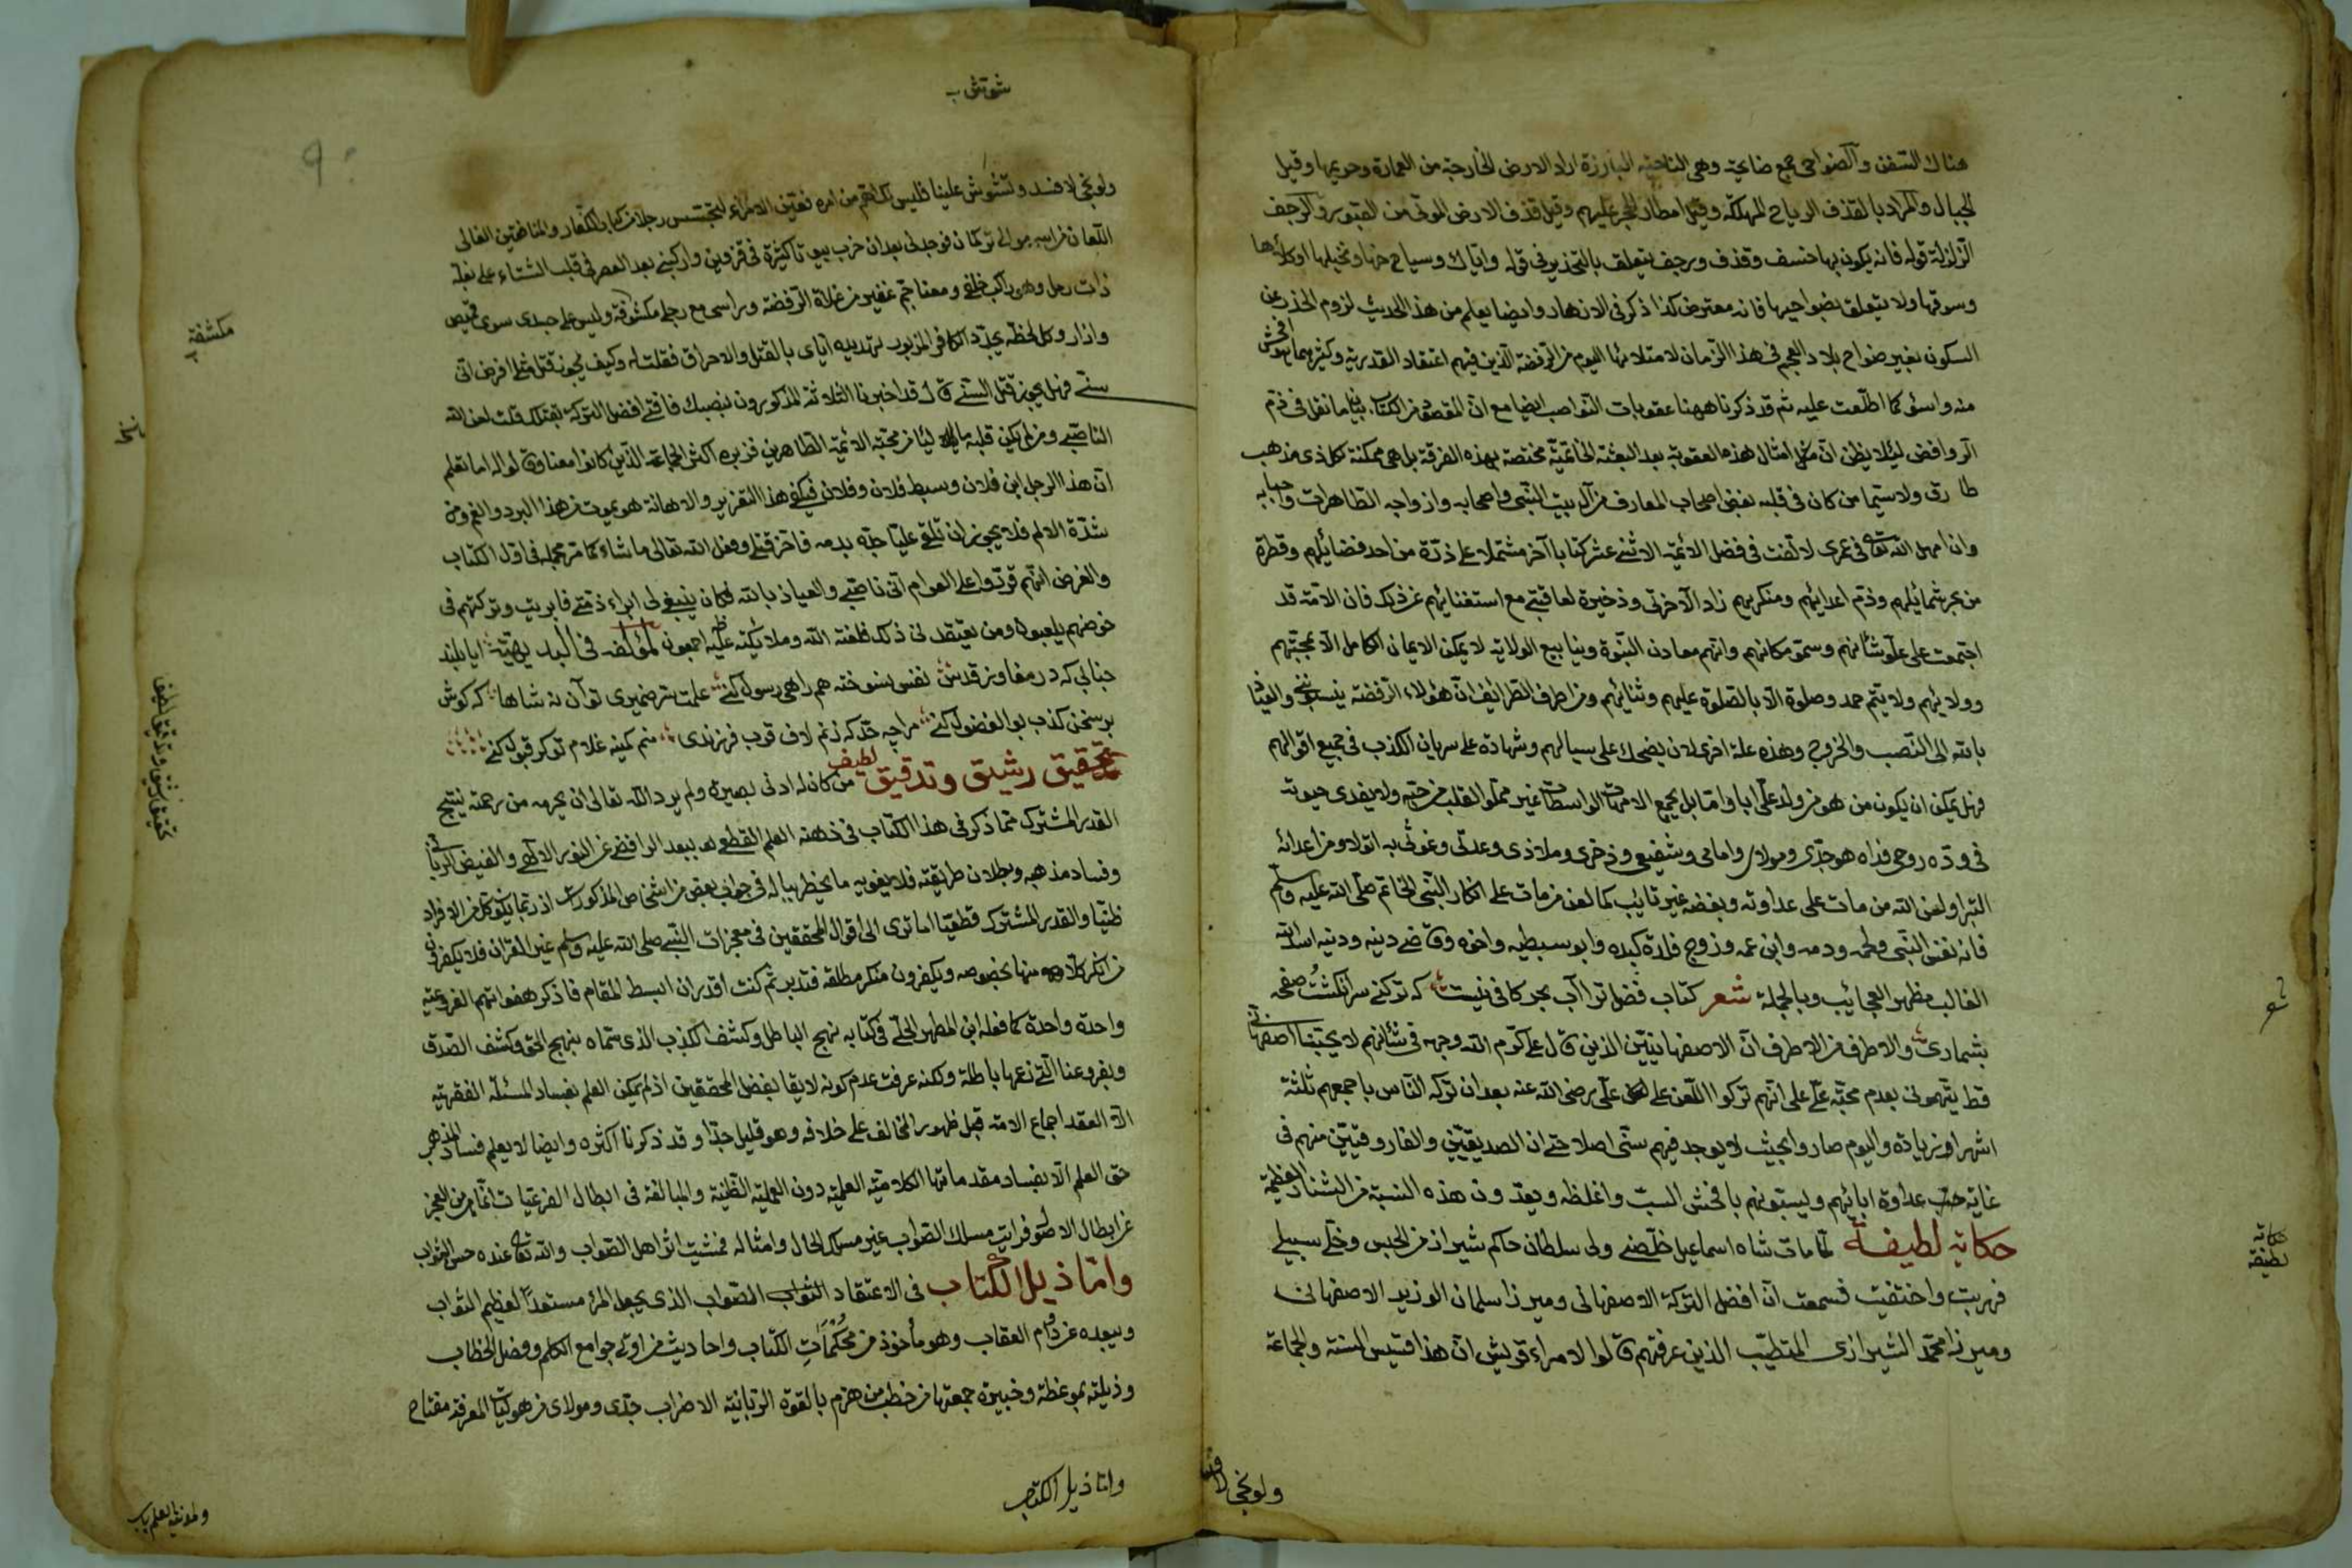 هناك السفن والضواحي جمع ضاحية وهي الناحية البارزة اراد الارض الخارجة من العمارة وحريمها وقيل
الجبال والمراد بالقذف الرياح المهلكة وقيل امطار الحجر عليهم وقيل قذف الارض الموتى من القبور والرجف
الزلزلة قوله فانه يكون بها خسف وقذف ورجف يتعلق بالتحذير في قوله واياك وسباخها ونخيلها او كلأها
وسوقها ولا يتعلق بضواحيها فانه معترض كذا ذكر في الازهار وايضا يعلم من هذا الحديث لزوم الحذر عن
السكون بغير ضواحي بلاد العجم في هذا الزمان لامتلائها اليوم من الرفضة الذين فيهم اعتقاد القدرية وكثير مما هو افحش
منه واسوء كما اطلعت عليه ثم قد ذكرنا ههنا عقوبات النواصب ايضا مع ان المقصود من الكتاب بيان ما نقل في ذم
الروافض لئلا يظن ان مثل امثال هذه العقوبة بعد البعثة الخاتمية مختصة بهذه الفرقة بل هي ممكنة لكل ذي مذهب
طارق ولا سيما من كان في قلبه بغض اصحاب المعارف من آل بيت النبي واصحابه وازواجه الطاهرات واحبابه
وان امهل الله تعالى في عمري لالفت في فضل الائمة الاثني عشر كتابا آخر مشتملا على ذرة من احد فضائلهم وقطرة
من بحر شمائلهم وذم اعدائهم ومنكريهم زاد الآخرتي وذخيرة لعاقبتي مع استغنائهم عن ذلك فان الامة قد
اجتمعت على علو شأنهم وسمو مكانهم وانهم معادن النبوة وينابيع الولاية لا يمكن الايمان الكامل الا بمحبتهم
وولائهم ولا يتم حمد وصلوة الا بالصلوة عليهم وثنائهم ومن اطرف الطرائف ان هؤلاء الرفضة ينسبونني والعياذ
بالله الى النصب والخروج وهذه علة اخرى لان يضحك على سبالهم وشهادة على سريان الكذب في جميع اقوالهم
فهل يمكن ان يكون من هو من ولد علي ابا واما بل بجميع الامهات الواسطات غير مملو القلب من حبه ولا يفدى حيوته
في وده روحي فداه هو جدي ومولاي وامامي وشفيعي وذخري وملاذي وعدتي وغوثي به اتولا ومن اعدائه
اتبرا ولعن الله من مات على عداوته وبغضه غير تائب كما لعن من مات على انكار النبي الخاتم صلى الله عليه وسلم
فانه نفس النبي ولحمه ودمه وابن عمه وزوج فلذة كبده وابو سبطيه واخوه وقاضي دينه ودنيه اسد الله
الغالب مظهر العجائب وبالجملة شعر كتاب فضل ترا آب بحر كافي نيست كه تر كني سر انگشت صفحه
بشماري والاطرف من الاطرف ان الاصفهانيين الذين قال علي كرم الله وجهه في شأنهم لا يحبنا اصفهاني
قط يتهموني بعدم محبة علي على انهم تركوا اللعن على علي رضي الله عنه بعد ان تركه الناس باجمعهم ثلثة
اشهر او زيادة واليوم صاروا بحيث لا يوجد فيهم سني اصلا حتى ان الصديقيين والفاروقيين منهم في
غاية حب عداوة ابائهم ويسبونهم بافحش السب واغلظه ويعدون هذه النسبة من الشنار العظيمة
حكاية لطيفة لما مات شاه اسماعيل خلصني ولي سلطان حاكم شيراز من الحبس وخلى سبيلي
فهربت واختفيت فسمعت ان افضل التركة الاصفهاني وميرزا سلمان الوزير الاصفهاني
وميرزا محمد الشيرازي المتطبب الذين عرفتهم قالوا لامراء قزلباش ان هذا قسيس السنة والجماعة
ولو نجى لافسد
شعر
حكاية لطيفة
شوتش ب
ولو نجى لافسد وتشوش علينا فليس لكم اهم من امره فعين الامراء لتجسس رجلا من كبار الكفار والمنافقين الغالي
اللعان من اسمه مولي تركمان فوجدني بعد ان خرب بيوتا كثيرة في قزوين واركبني بعد العصر في قلب الشتاء على بغلة
ذات رحل وهو راكب خلفي ومعنا جم غفير من غلاة الرفضة وراسي مع رجلي مكشوفة وليس على جسدي سوى قميص
وازار وكل لحظة يجدد الكافر المزبور تهديده اياي بالقتل والاحراق فقلت له وكيف يجوز قتل مثلي افرض اني
سني فهل يجوز قتل السني قال قد اخبرنا الثلاثة المذكورون بنصبك فافتى افضل التركة بقتلك قلت لعن الله
الناصبي ومن لم يكن قلبه مملوئا من محبة الائمة الطاهرين فزبره اكثر الجماعة الذين كانوا معنا وقالوا له اما تعلم
ان هذا الرجل ابن فلان وسبط فلان وفلان فيكفي هذا التعزير والاهانة هو يموت من هذا البرد والغم ومن
شدة الالم فلا يجوز ان تلقى عليا جده بدمه فاخر قتلي وفعل الله تعالى ما شاء كما مر مجمله في اول الكتاب
والغرض انهم قرروا على العوام اني ناصبي والعياذ بالله فكان ينبغي لي ابراء ذمتي فابريت وتركتهم في
خوضهم يلعبون ومن يعتقد لي ذلك فلعنة الله وملائكته عليه اجمعون لمؤلفه في البديهية ايا بلند
جنابي كه در مغاوز قدس نفس بسوخته همراهي رسول كني علمت بر ضميري تو آن نه شاها كه كوش
بر سخن كذب بو الفضول كني مرا چه حد كه زنم لاف قرب فرزندي منم كمينه غلام تو گر قبول كني
تحقيق رشيق وتدقيق لطيف من كان له ادنى بصيرة ولم يرد الله تعالى ان يحرمه من رحمته ينتج
القدر المشترك مما ذكر في هذا الكتاب في ذهنه العلم القطعي له ببعد الرافضي عن النور الالهي والفيض الرباني
وفساد مذهبه وبطلان طريقته فلا يغويه ما يخطر بباله في جواب بعض من اشخاص المذكورات اذ ربما يكون كل من الافراد
ظنيا والقدر المشترك قطعيا اما ترى الى اقوال المحققين في معجزات النبي صلى الله عليه وسلم غير القرآن فلا يكفرون
من انكر كلا منها بخصوصه ويكفرون منكر مطلقه فتدبر ثم كنت اقدر ان ابسط المقام فاذكر هفواتهم الفروعية
واحدة واحدة كما فعله ابن المطهر الحلي في كتابه نهج الباطل وكشف الكذب الذي سماه بنهج الحق وكشف الصدق
وبفروعنا التي زعمها باطلة ولكنه عرفت عدم كونه لايقا بفضل المحققين اذ لم يمكن العلم بفساد المسئلة الفقهية
الا العقد اجماع الامة قبل ظهور المخالف على خلافه وهو قليل جدا وقد ذكرنا اكثره وايضا لا يعلم فساد المذهب
حق العلم الا بفساد مقدماتها الكلامية العلمية دون العملية الظنية والمبالغة في ابطال الفرعيات انما هو من العجز
عن ابطال الاصول فرايت مسلك الصواب غير مسلك الحال وامثاله فمشيت اثر اهل الصواب والله تعالى عنده حسن الثواب
واما ذيل الكتاب في الاعتقاد الثواب الصواب الذي يجعل المرء مستعدا لعظيم الثواب
ويبعده عن دوام العقاب وهو مأخوذ من محكمات الكتاب واحاديث من اوتي جوامع الكلم وفصل الخطاب
وذيلته بموعظة وخبيرة جمعتها من خطب من هزم بالقوة الربانية الاحزاب جدي ومولاي من هو لباب المعرفة مفتاح
واما ذيل الكتاب
مكشفة
تحقيق رشيق وتدقيق لطيف